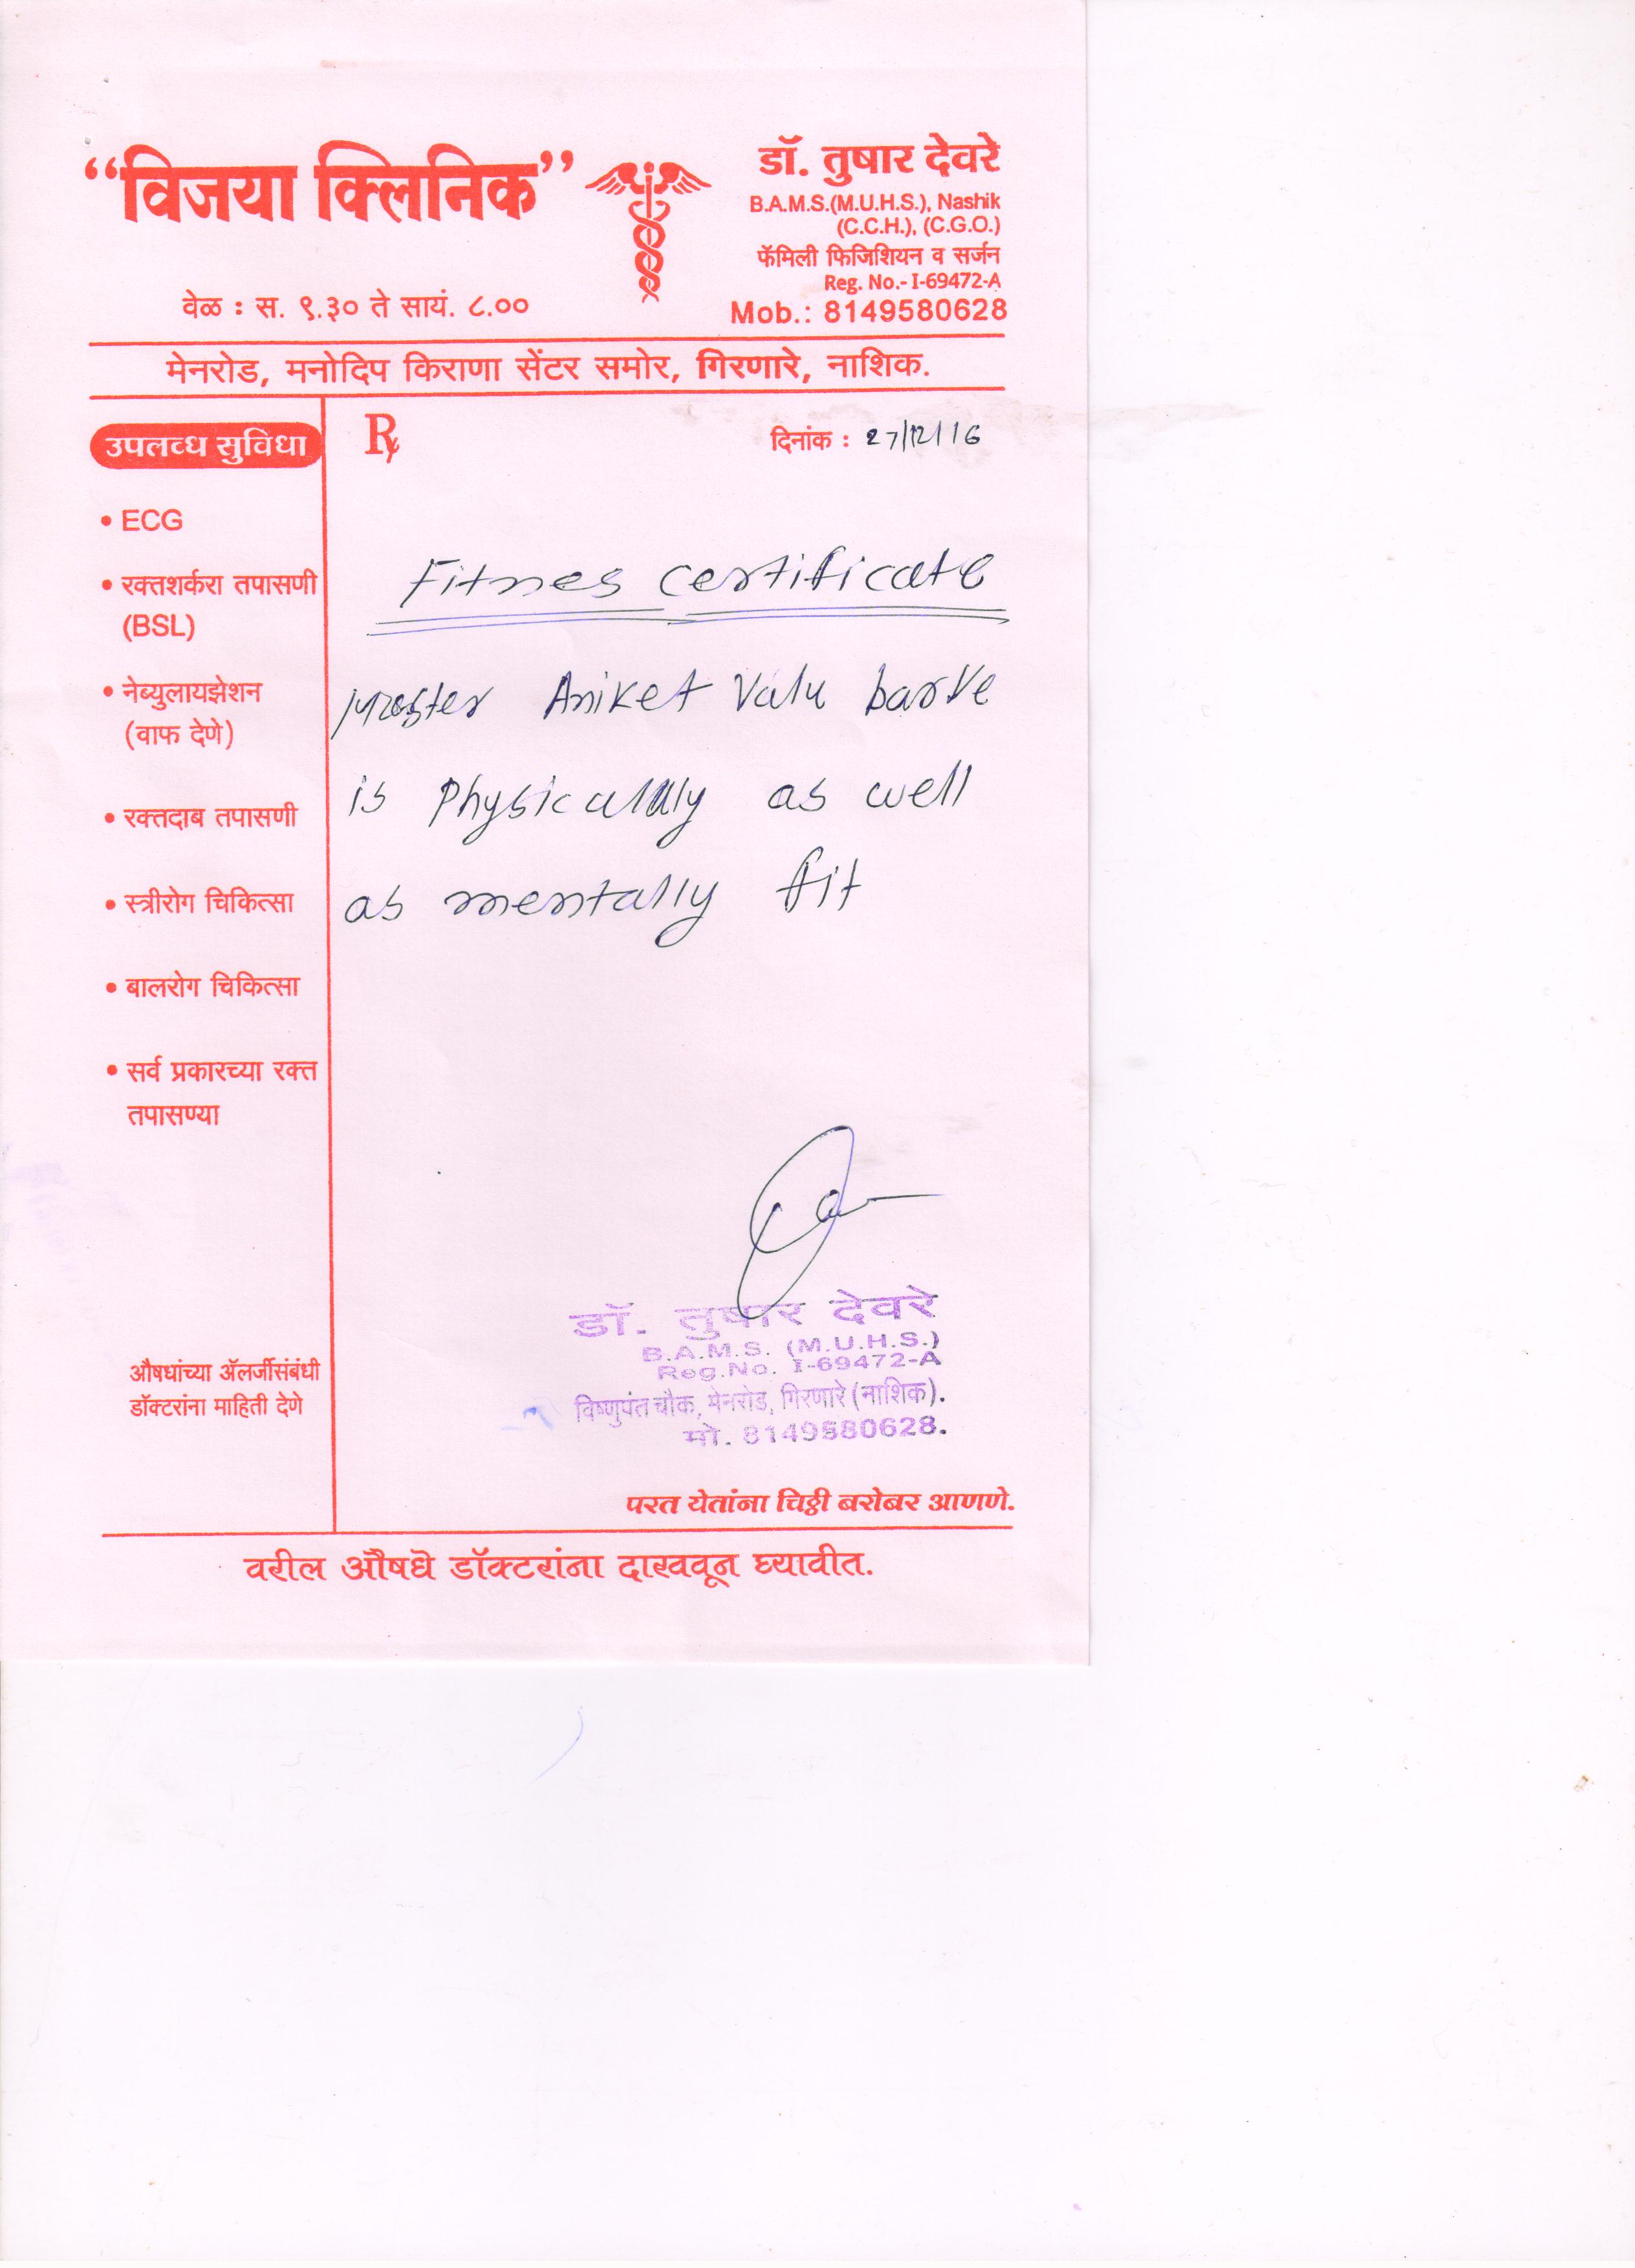 “विजया क्लिनिक”
वेळ : स. ९.३० ते सायं. ८.००
डॉ. तुषार देवरे
B.A.M.S.(M.U.H.S.), Nashik
(C.C.H.), (C.G.O.)
फॅमिली फिजिशियन व सर्जन
Reg. No.- I-69472-A
Mob.: 8149580628
मेनरोड, मनोदिप किराणा सेंटर समोर, गिरणारे, नाशिक.
उपलब्ध सुविधा
• ECG
• रक्तशर्करा तपासणी
(BSL)
• नेब्युलायझेशन
(वाफ देणे)
• रक्तदाब तपासणी
• स्त्रीरोग चिकित्सा
• बालरोग चिकित्सा
• सर्व प्रकारच्या रक्त
तपासण्या
औषधांच्या ॲलर्जीसंबंधी
डॉक्टरांना माहिती देणे
℞
दिनांक : 27/12/16
Fitnes certificate
Master Aniket Valu barve
is physically as well
as mentally fit
डॉ. तुषार देवरे
B.A.M.S. (M.U.H.S.)
Reg.No. I-69472-A
विष्णुपंत चौक, मेनरोड, गिरणारे (नाशिक).
मो. 8149580628.
परत येतांना चिठ्ठी बरोबर आणणे.
वरील औषधे डॉक्टरांना दाखवून घ्यावीत.